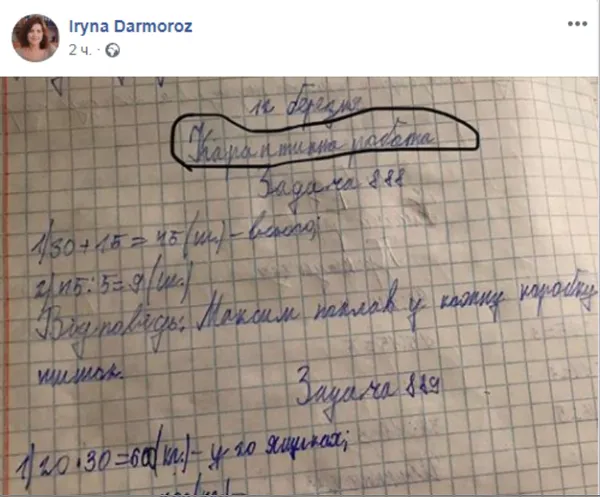 Iryna Darmoroz
2 ч.
12 березня
Карантинна робота
Задача 888
1) 30 + 15 = 45 (м.) - всього;
2) 45 : 5 = 9 (м.)
Відповідь: Максим поклав у кожну коробку
Задача 889
1) 20 · 30 = 600 (кг.) - у 20 ящиках;